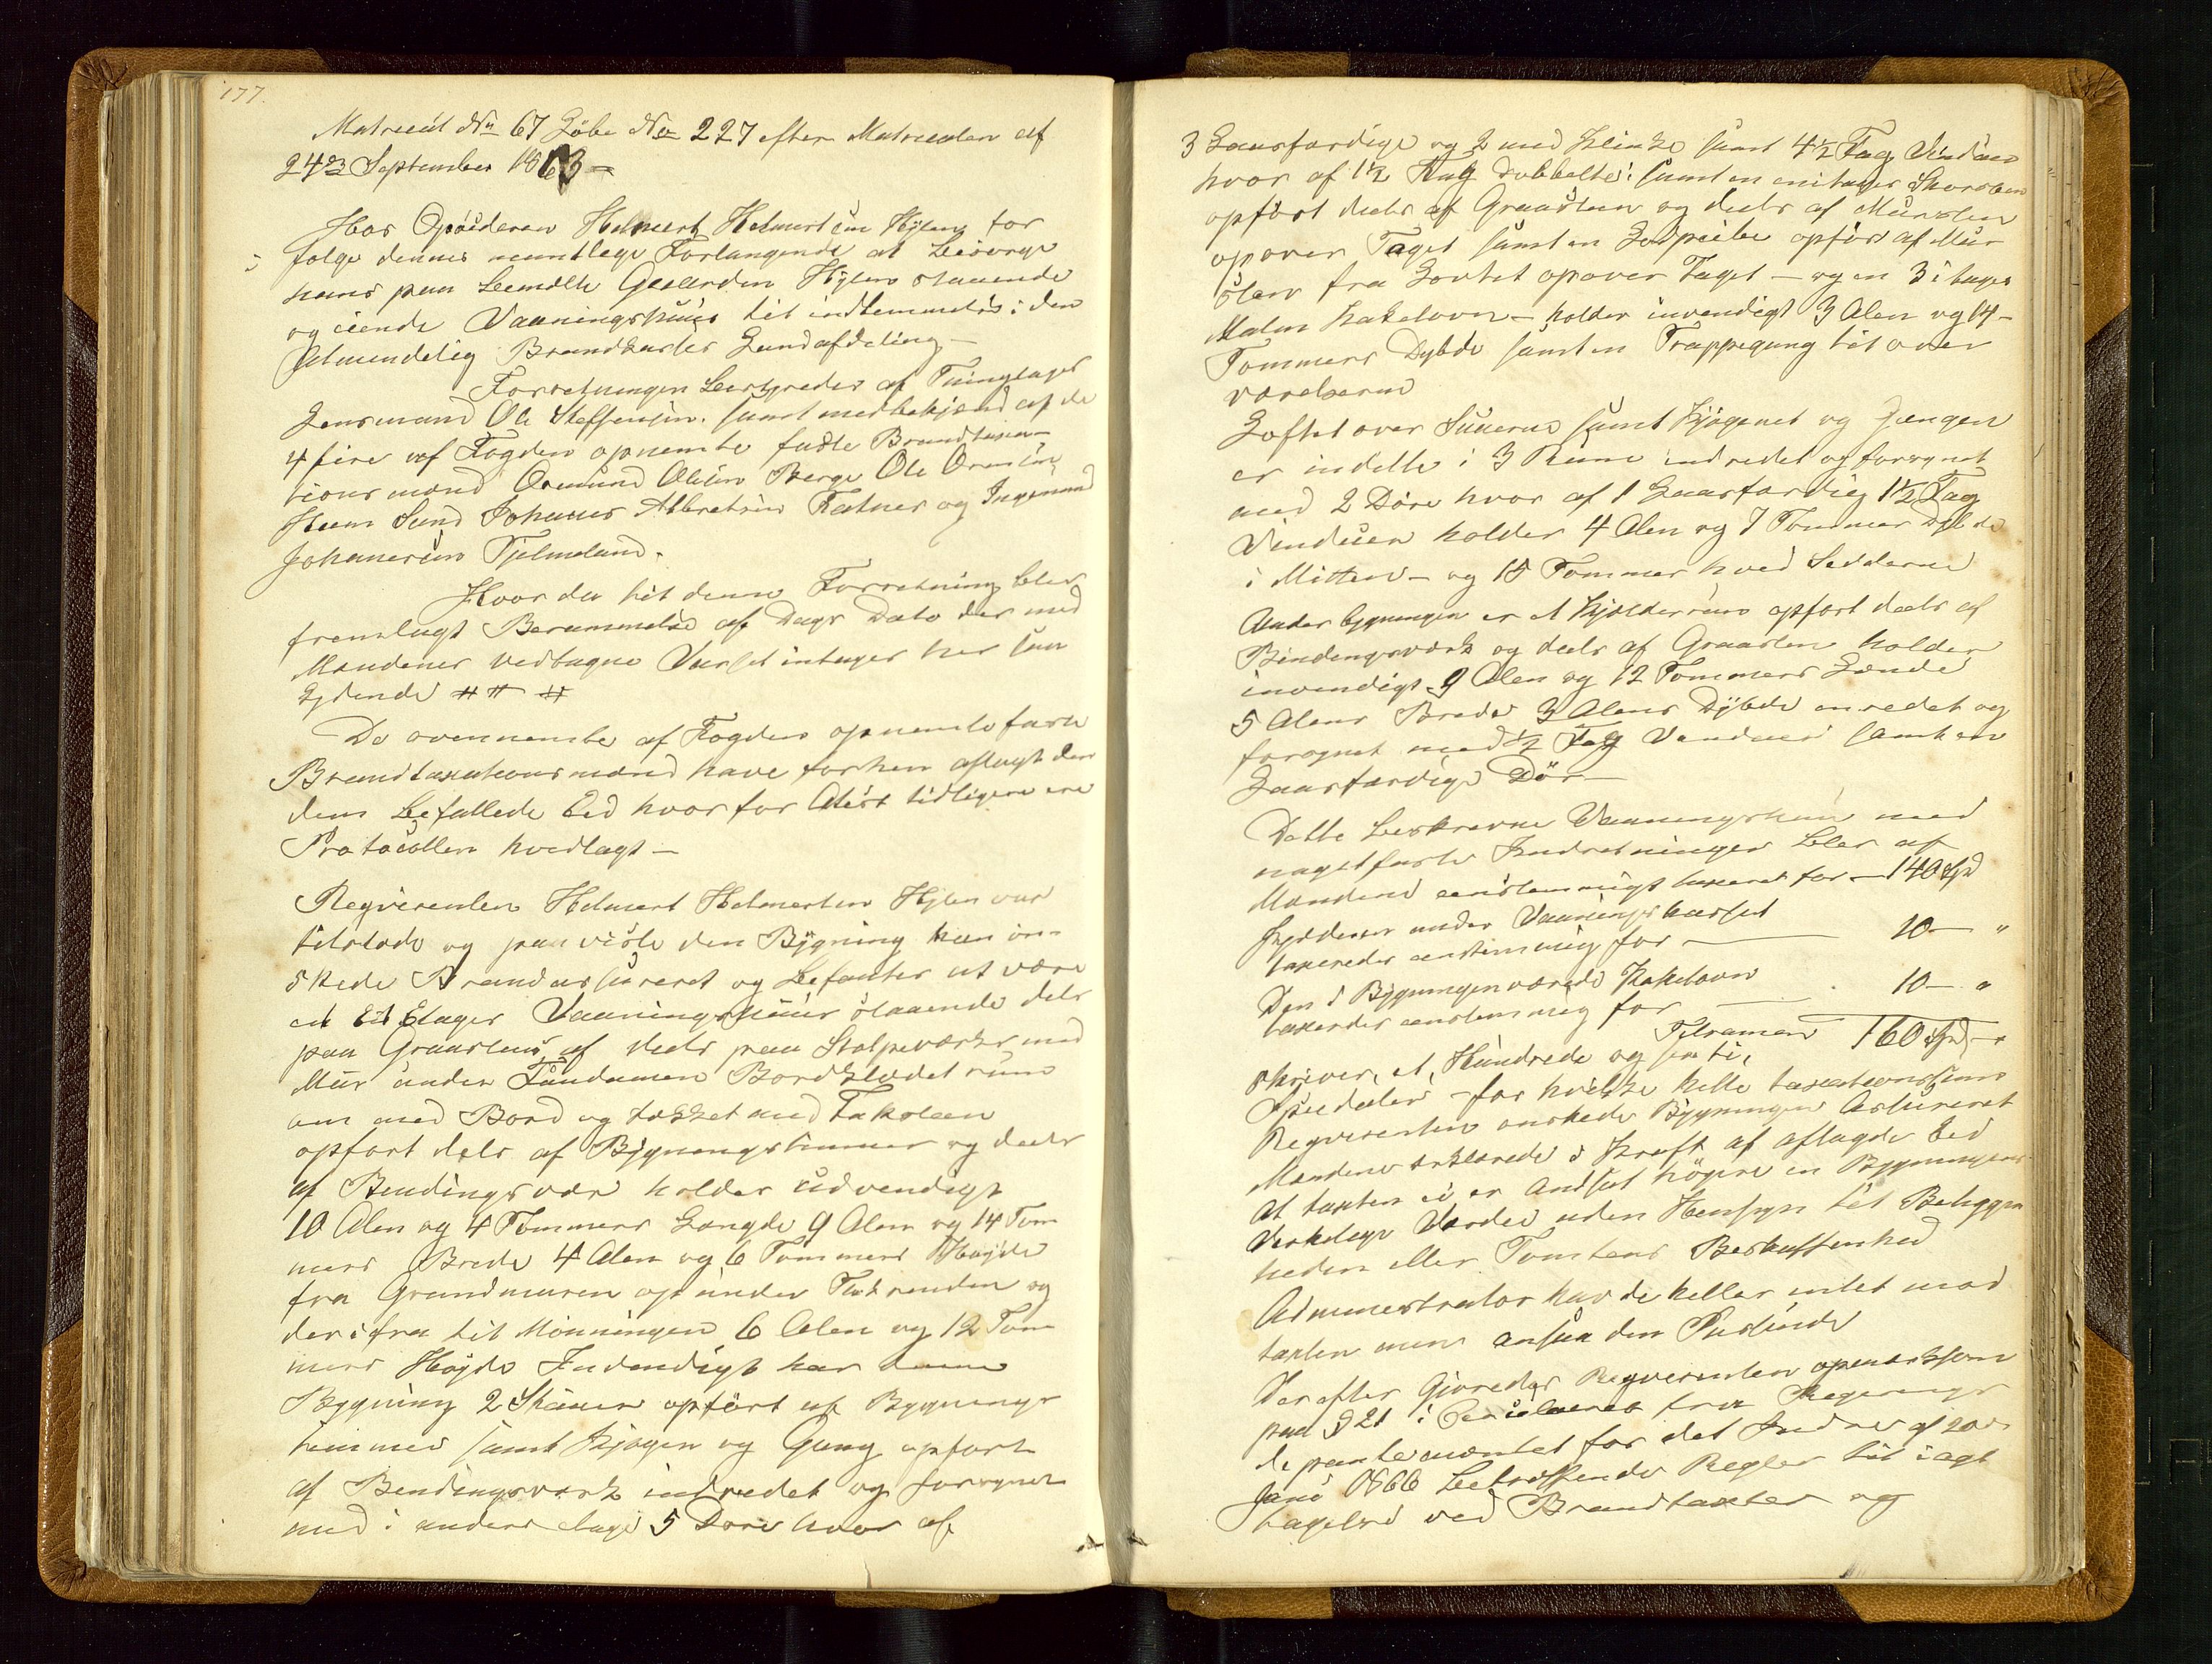 177.
Matrecül No 67 Löbe No 227 efter Matriculen af
24de September 1863 -
Hos Opsideren Helmert Helmertsen Hÿlen for
i følge dennes mundtlege Forlangende at
hans paa Gaarden Hÿlen staaende
og eiende Vaaningshuus til indlemmelse i den
Almendelig Brandkasses Landafdeling -
Forretningen bestyredes af Tinglagets
Lensmand Ole Steffensen samt med af de
4 fire af Fogden opnemte faste Brandtaxa-
tions mænd Osmund Olsen Berge Ole Ormsen
Sand Johanes Albretsen Fatnes og Ingemund
Johanesen Tjelmeland.
Hvor da til denne Forretning blev
fremlagt Berammelse af Dags Dato der med
Mændenes vedtagne Varsel intages her saa
Lydende # # #
De ovennemte af Fogden opnemte faste
Brandtaxationsmænd have forhen aflagt den
dem befallede Eed hvorfor Attest tidligere ere
Protocollen hvedlagt -
Reqvirenten Helmert Helmertsen Hylen var
tilstede og paaviste den Bÿgning han ön-
skede Brandassureret og befantes at være
et Ett Etages Vaaningshuus staaende dels
paa Graasteens af deels paa Stolpeværks med
Mür under Fündamen Bordklædet rundt
om med Bord og tækket med Taksteen
opfört dels af Bÿgningstimmer og deels
af Bendingsvær holder üdvendigt
10 Alen og 4 Tommers Længde 9 Alen og 14 Tom
mers Brede 4 Alen og 6 Tommers Høÿde
fra Grundmuren op ünder Takrenden og
der ifra til Mönningen 6 Alen og 12 Tom
mers Høÿde Indvendigt har denne
Bygning 2 Stüeer opfört af Bygnings
timmer samt Kjøgen og Gang opfort
af Bendingsverk indredet og forsynet
med i anders etage 5 Döre hvor af
3 Laasfærdige og 2 med Klinke samt 4½ Fag Vindüer
hvor af 1½ Fag Dobbelte samt en enetages Skorsten
opfört deels af Graasteen og deels af Mürsten
opover Taget samt en Lodpiibe opført af Mür
sten fra Loftet opover Taget - og en 3 etages
Malm Kakelovn - holder invendigt 3 Alen og 14 -
Tommers Dÿbde samt en Trappegang til over
værelserne
Loftet over Stüerne samt Kjøgenet og Gangen
er indelte i 3 Rüm indredet og forsynet
med 2 Döre hvor af 1 Laasfærdig 1½ Fag
Vindüer holder 4 Alen og 7 Tommer Dÿbde
i Mitten - og 15 Tommer hved Sidderne
Under bygningen er et Kjælderrüm opfört deels af
Bindingsværk og deels af Graasten holder
invendigt 9 Alen og 12 Tommers Længde
5 Alens Brede 3 Alens Dÿbde enredet og
forsynet med ½ Fag Vendüer samt en
Laasfærdige Dör -
Dette beskrevne Vaaningshüs med
nagelfaste Indretninger blev af
Mændene eenstemmigt taxeret for - 140 Spd
Kjelderen under Vaaningshusset
taxeredes eenstemmig for - 10 - "
Den i Bÿgningen værende Kakelovn
taxerdes eenstemmig for - 10 - "
Tilsamen 160 Spd - "
skriver, et Hündrede og Sexti,
Specieler - for hvilke hele taxationssum
Reqvirenten onskede Bÿgningen Assureret
Mændene erklærede i Kraft af aflagde Eed
At taxten ei er Andsat høgere en Bygningens
Verkelege Værdie uden Hensyn til Beliggen
heden eller Tomtens Beskaffenhed
Administrator havde heller intet mod
taxten men ansaa den Passende
Der efter Gjoredes Reqvirenten opmerksom
paa § 21 i Cerculæret fra Regerings
departementet for det Indre af 20de
Juni 1866 betreffende Regler til iagt
tagelse ved Brandtaxter og